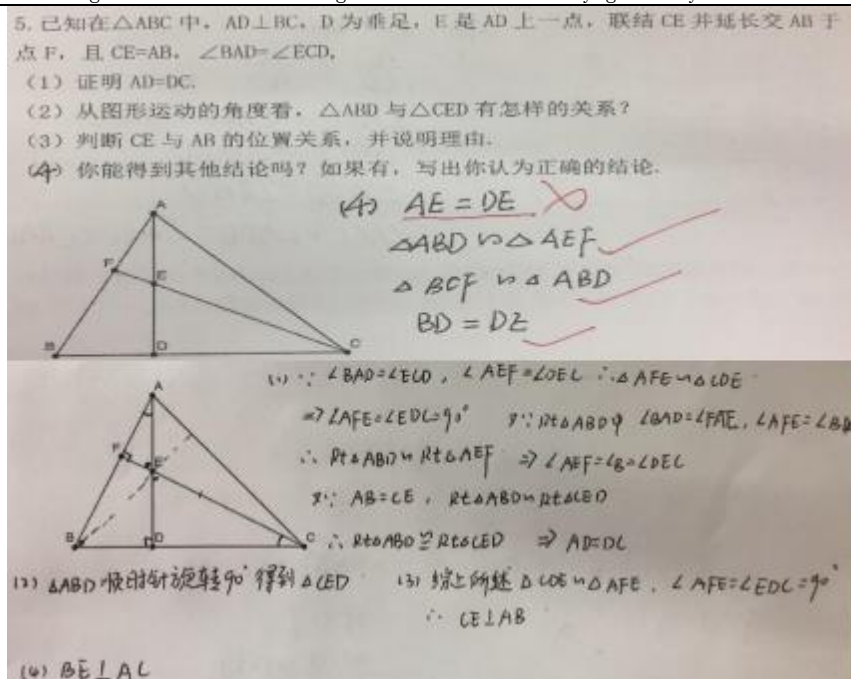 5. 已知在△ABC 中，AD⊥BC，D 为垂足，E 是 AD 上一点，联结 CE 并延长交 AB 于
点 F，且 CE=AB，∠BAD=∠ECD，
（1）证明 AD=DC.
（2）从图形运动的角度看，△ABD 与△CED 有怎样的关系？
（3）判断 CE 与 AB 的位置关系，并说明理由.
（4）你能得到其他结论吗？如果有，写出你认为正确的结论.
A
F
E
B
D
C
(4) AE = DE
△ABD ∽ △AEF
△BCF ∽ △ABD
BD = DE
(1) ∵ ∠BAD=∠ECD，∠AEF=∠DEC ∴△AFE∽△CDE
⇒∠AFE=∠EDC=90° 又∵Rt△ABD中 ∠BAD=∠FAE，∠AFE=∠BD
∴ Rt△ABD∽Rt△AEF ⇒ ∠AEF=∠B=∠DEC
又∵ AB=CE，Rt△ABD∽Rt△CED
∴ Rt△ABD≌Rt△CED ⇒ AD=DC
A
F
E
B
D
C
(2) △ABD 顺时针旋转90°得到△CED
(3) 综上所述 △CDE∽△AFE，∠AFE=∠EDC=90°
∴ CE⊥AB
(4) BE⊥AC